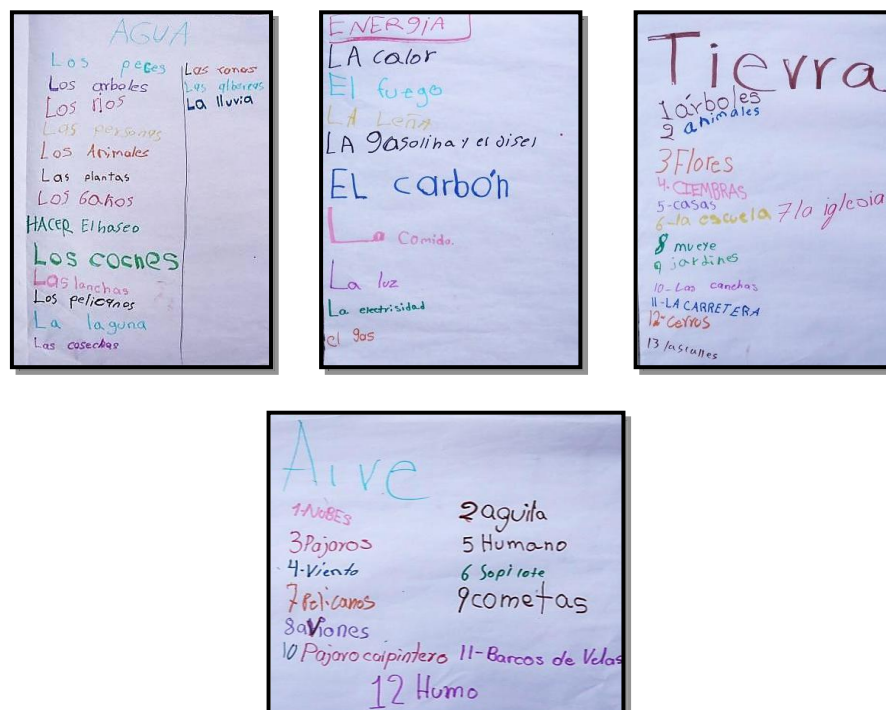 AGUA
Los peces
Los arboles
Los rios
Las personas
Los Animales
Las plantas
Los baños
HACER El haseo
Los coches
Las lanchas
Los pelicanos
La laguna
Las cosechas
Las ranas
Las albercas
La lluvia
ENERGiA
LA calor
El fuego
LA Leña
LA gasolina y el disel
EL carbón
La Comida.
La luz
La electrisidad
el gas
Tierra
1 árboles
2 animales
3 Flores
4. CIEMBRAS
5-casas
6-la escuela 7 la iglesia
8 mueye
9 jardines
10-Las canchas
11-LA CARRETERA
12-carros
13 las calles
Aire
1-NUBES 2 aguila
3 Pajaros 5 Humano
4-Viento 6 Sopilote
7 Pelicanos 9 cometas
8 aViones
10 Pajaro caipintero 11-Barcos de Velas
12 Humo